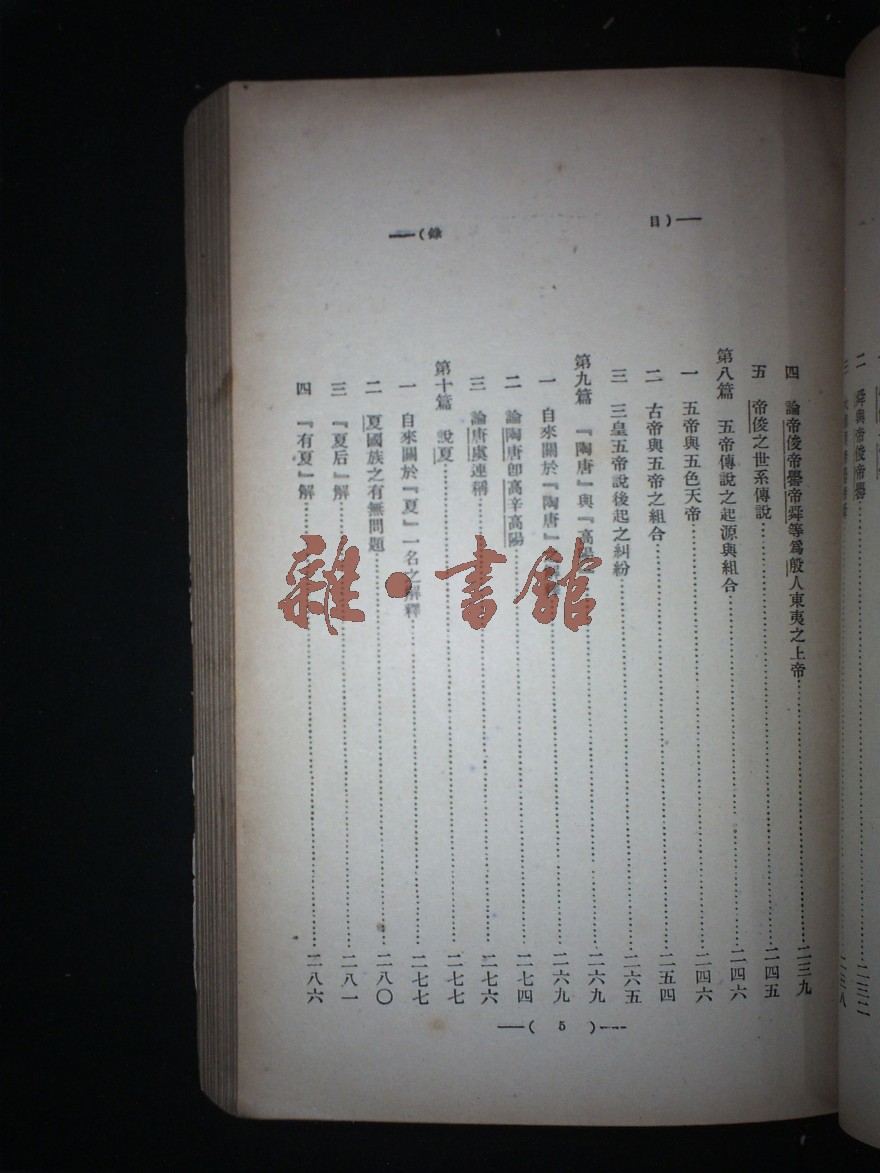 目錄
四　論帝俊帝嚳帝舜等爲殷人東夷之上帝……二三九
五　帝俊之世系傳說……二四五
第八篇　五帝傳說之起源與組合……二四六
一　五帝與五色天帝……二四六
二　古帝與五帝之組合……二五四
三　三皇五帝說後起之糾紛……二六五
第九篇　『陶唐』與『高陽』……二六九
一　自來關於『陶唐』之……二六九
二　論陶唐卽高辛高陽……二七四
三　論唐虞連稱……二七六
第十篇　說夏……二七七
一　自來關於『夏』一名之解釋……二七七
二　夏國族之有無問題……二八〇
三　『夏后』解……二八一
四　『有夏』解……二八六
(5)
二　舜與帝俊帝嚳……二三二
雜·書館